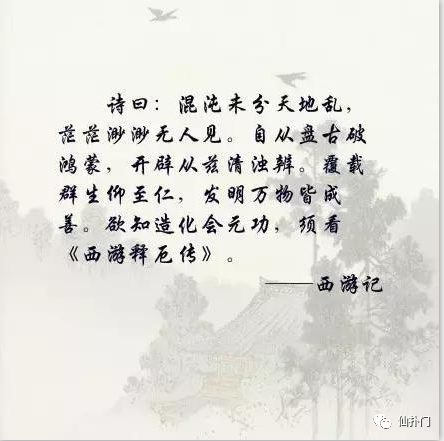 诗曰：混沌未分天地乱，
茫茫渺渺无人见。自从盘古破
鸿蒙，开辟从兹清浊辨。覆载
群生仰至仁，发明万物皆成
善。欲知造化会元功，须看
《西游释厄传》。
——西游记
仙扑门